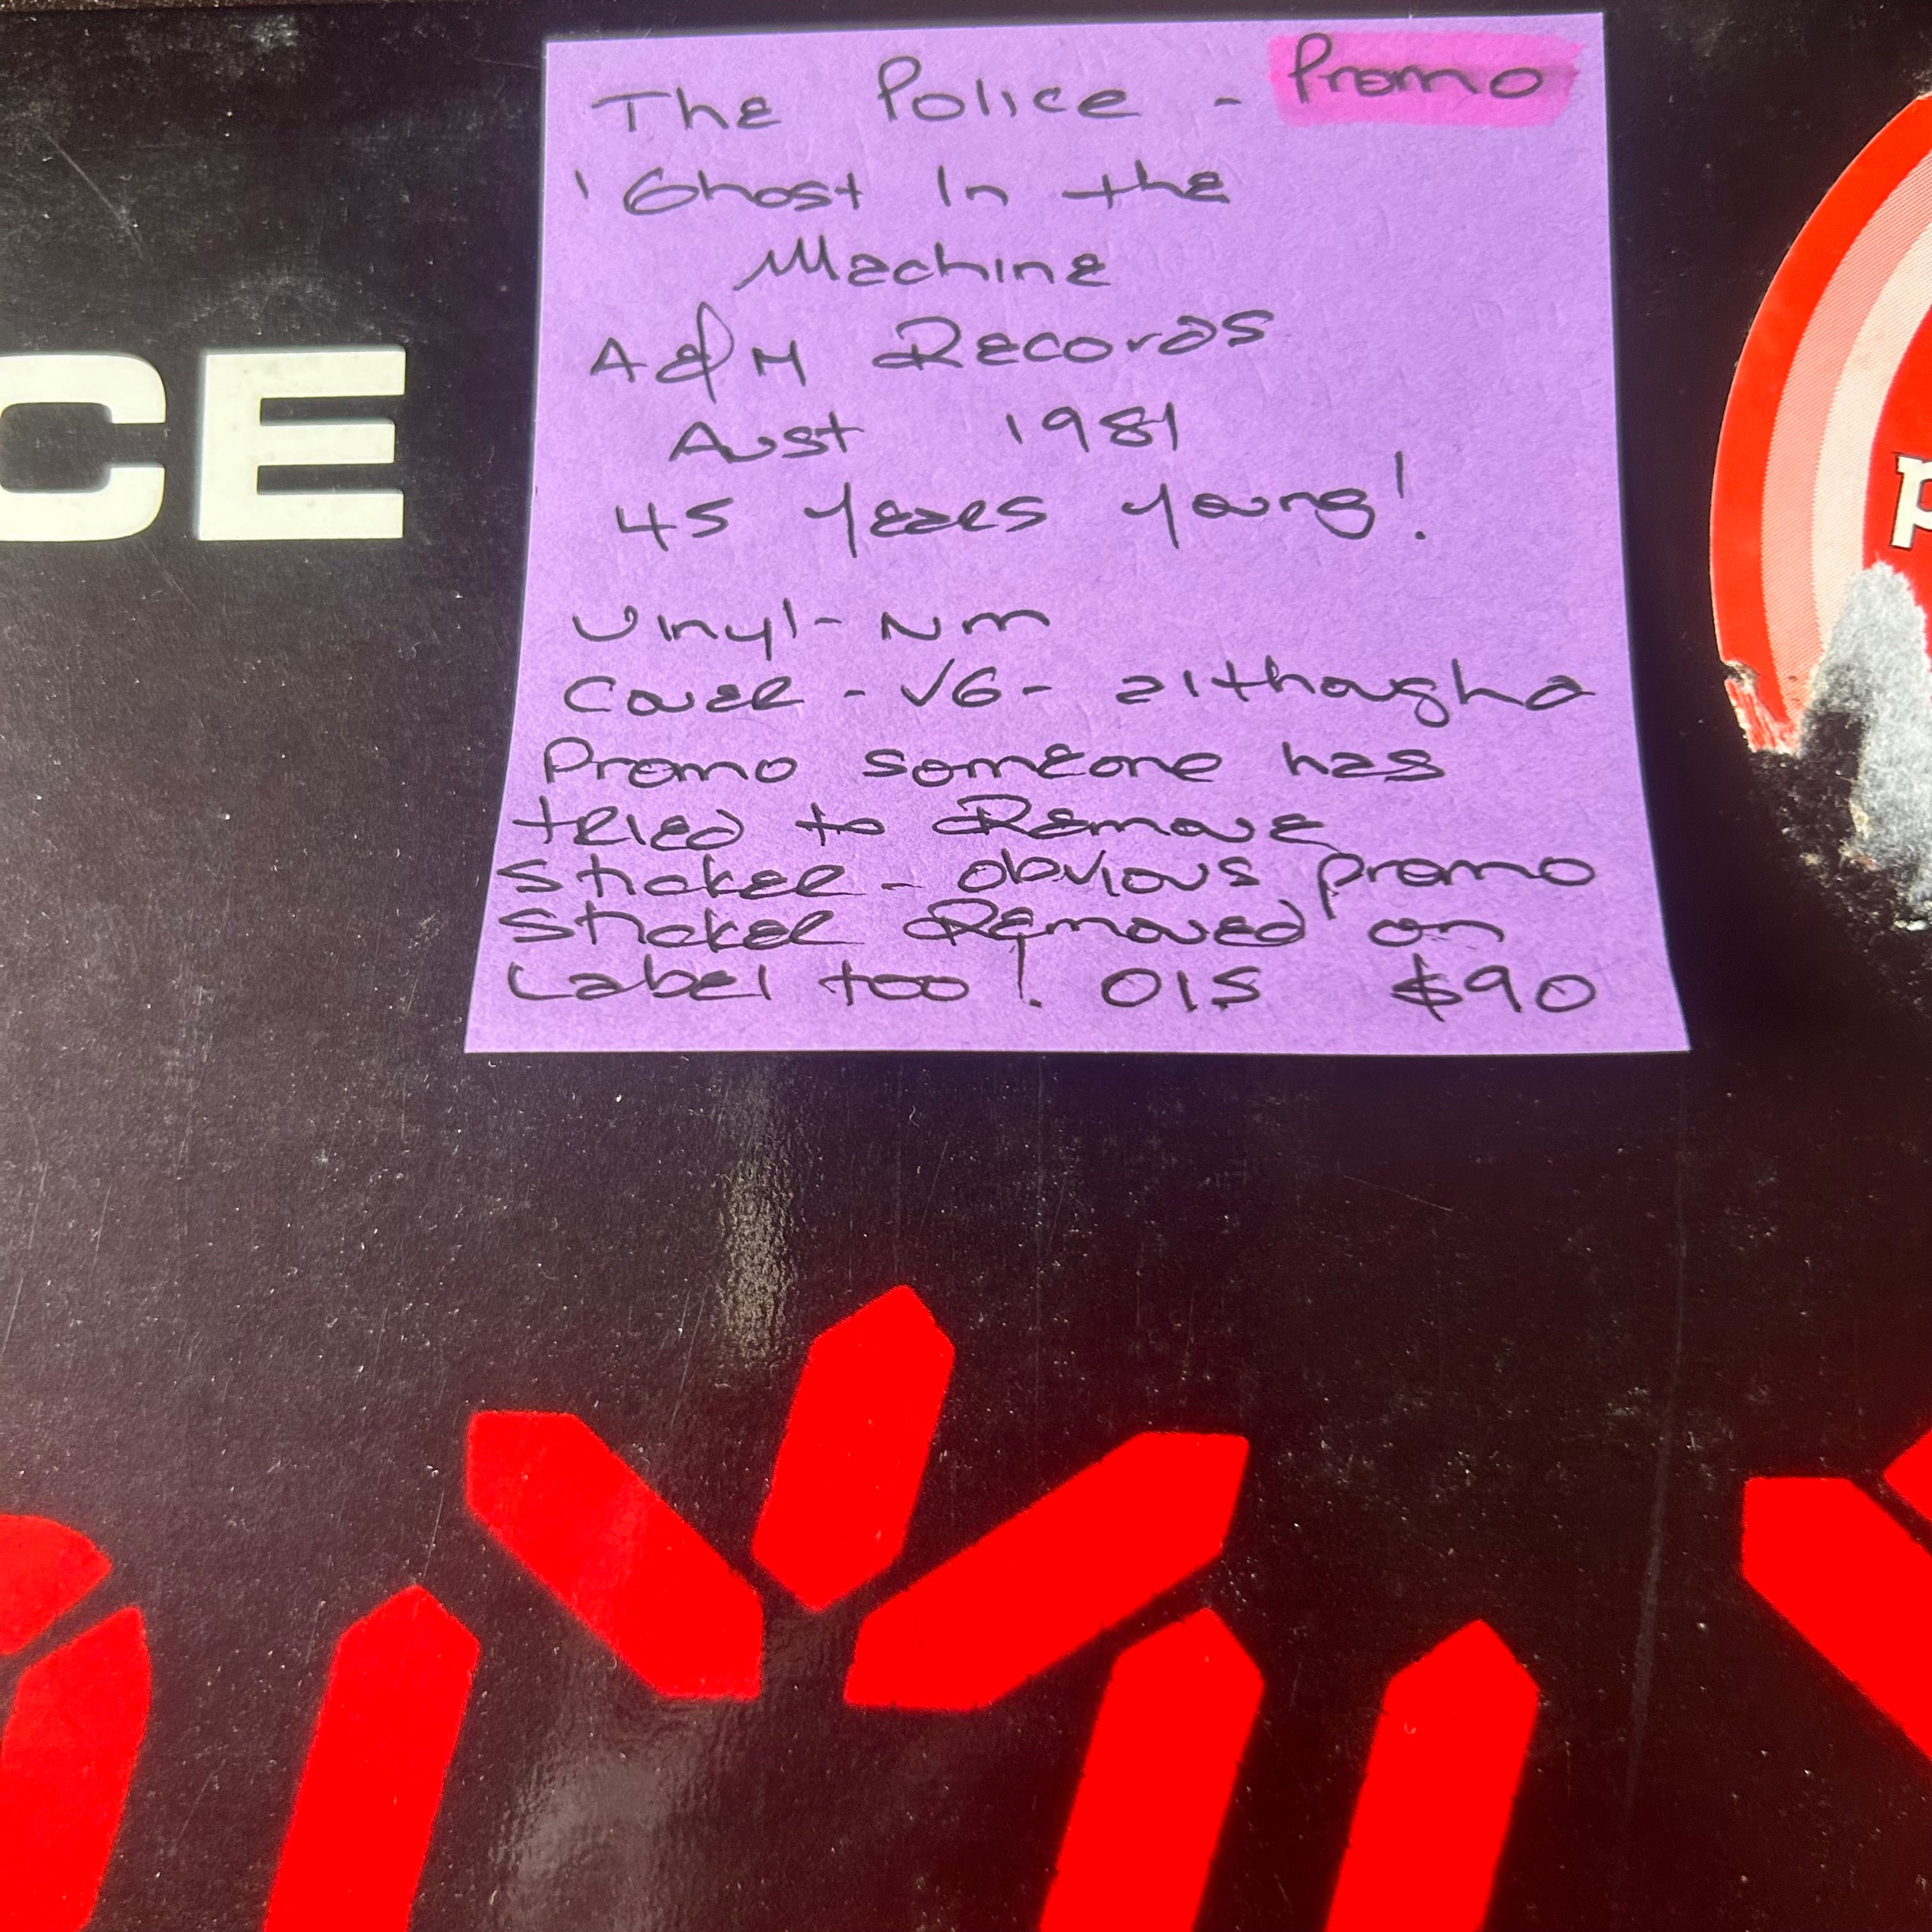 The Police - Promo
'Ghost In the
Machine
A&M Records
Aust 1981
45 Years Young!
Vinyl - NM
Cover - VG - although a
Promo someone has
tried to Remove
Sticker - obvious promo
Sticker Removed on
Label too! OIS $90
CE
p